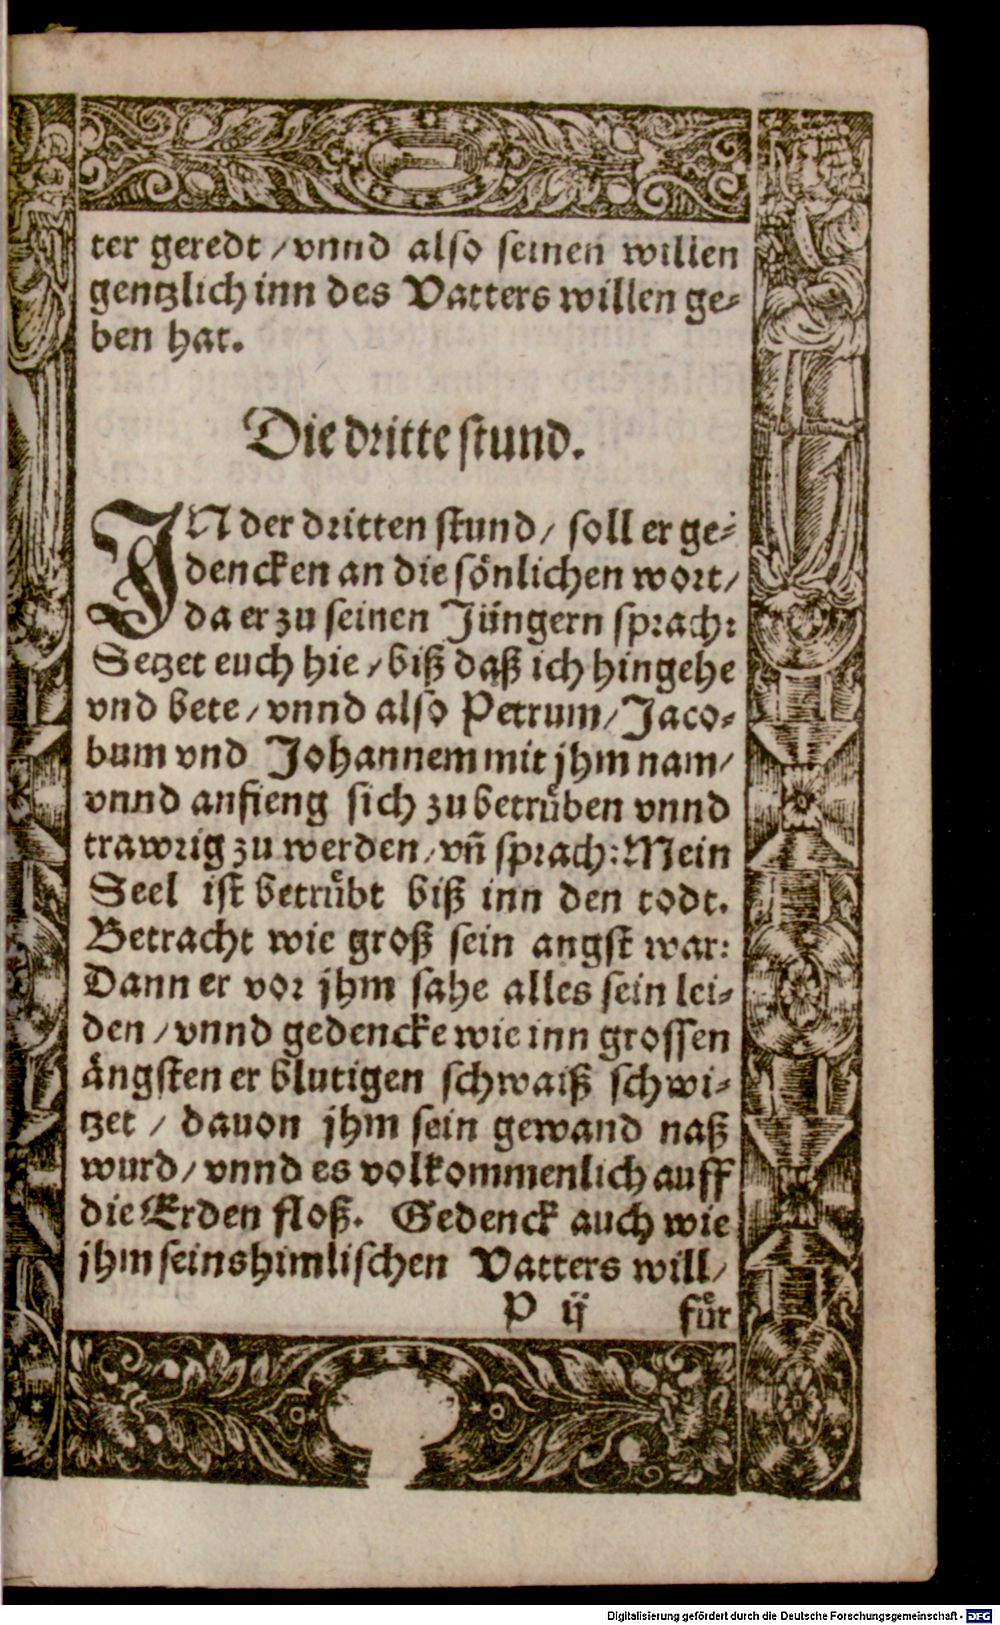 ter geredt / vnnd also seinen willen
gentzlich inn des Vatters willen ge⸗
ben hat.
Die dritte stund.
IN der dritten stund / soll er ge⸗
dencken an die sönlichen wort /
da er zu seinen Jüngern sprach:
Setzet euch hie / biß daß ich hingehe
vnd bete / vnnd also Petrum / Jaco⸗
bum vnd Johannem mit jhm nam /
vnnd anfieng sich zu betrüben vnnd
trawrig zu werden / vñ sprach: Mein
Seel ist betrübt biß inn den todt.
Betracht wie groß sein angst war:
Dann er vor jhm sahe alles sein lei⸗
den / vnnd gedencke wie inn grossen
ängsten er blutigen schwaiß schwi⸗
tzet / dauon jhm sein gewand naß
wurd / vnnd es volkommenlich auff
die Erden floß. Gedenck auch wie
jhm seins himlischen Vatters will /
P ij für
Digitalisierung gefördert durch die Deutsche Forschungsgemeinschaft - DFG